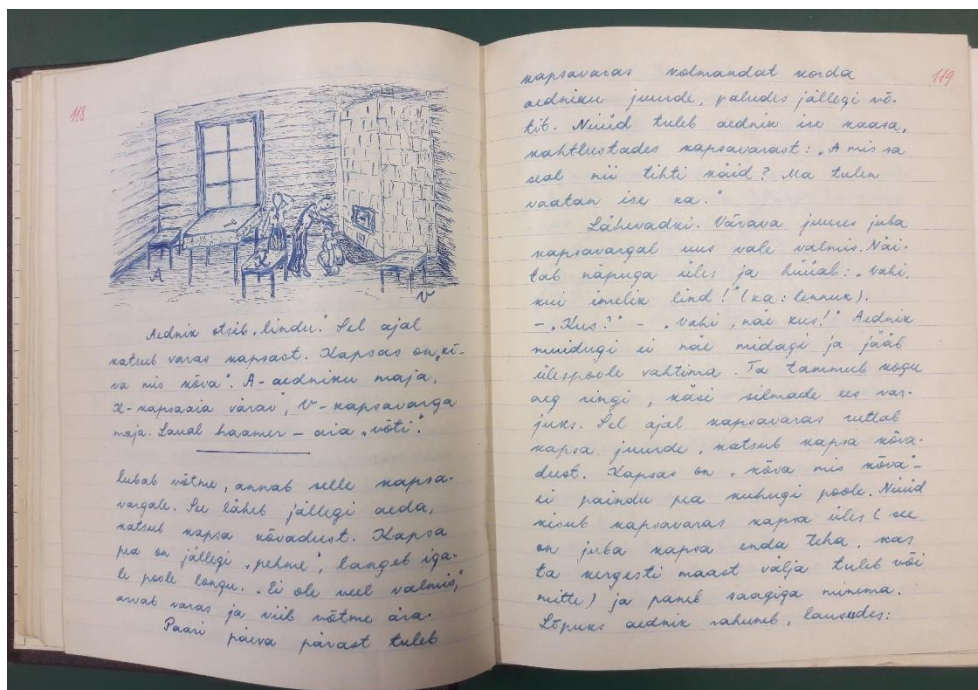 118
A
V
Aednik otsib „lindu.” Sel ajal
katsub varas kapsast. Kapsas on „ki-
va mis kõva”. A- aedniku maja,
K- kapsaaia värav”, V- kapsavarga
maja. Laual haamer – aia „võti”.
lubab võtme, annab selle kapsa-
vargale. See läheb jällegi aeda,
katsub kapsa kõvadust. Kapsa
pea on jällegi „pehme”, langeb iga-
le poole longu. „Ei ole veel valmis,”
arvab varas ja viib võtme ära.
Paari päeva pärast tuleb
119
kapsavaras kolmandat korda
aedniku juurde, paludes jällegi võ-
tit. Nüüd tuleb aednik ise kaasa,
kahtlustades kapsavarast: „A mis sa
seal nii tihti käid? Ma tulen
vaatan ise ka.”
Lähevadki. Värava juures juba
kapsavargal uus vale valmis. Näi-
tab näpuga üles ja hüüab: „Vahi,
kui imelik lind!” (ka: lennuk).
– „Kus?” – „Vahi, näe kus!” Aednik
muidugi ei näe midagi ja jääb
ülespoole vahtima. Ta tammub kogu
aeg ringi, käsi silmade ees var-
juks. Sel ajal kapsavaras ruttab
kapsa juurde, katsub kapsa kõva-
dust. Kapsas on „kõva mis kõva” –
ei paindu pea kuhugi poole. Nüüd
kisub kapsavaras kapsa üles (see
on juba kapsa enda teha, kas
ta kergesti maast välja tuleb või
mitte) ja paneb saagiga minema.
Lõpuks aednik rahuneb, lausudes: